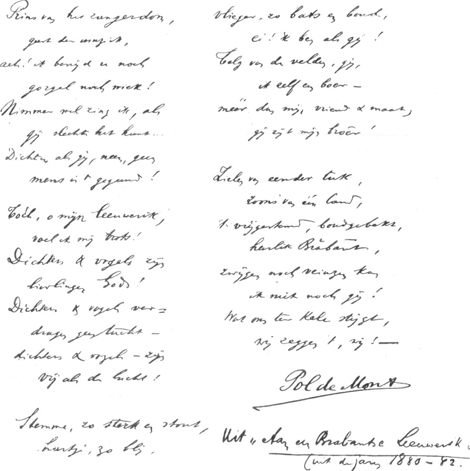 Prins van het zangerdom,
gort den
ach! ik benijd u noch
gorgel noch
Nimmer wil zing ik, als
gij slechts het kunt...
Dichter als gij, neen, geen
mens is 't gegund!
Tòch, o mijn leeuwerik,
voel ik mij trots!
Dichters & vogels zijn
lievlingen Gods!
Dichters & vogels ver-
dragen geen tucht –
dichters & vogels – zijn
vrij als de lucht!
Stemme, zo sterk en stout,
hartje, zo blij,
vlieger, zo bats en boud,
ei! ik ben als gij!
Telg van de velden, gij,
ik zelf een boer –
méér dan mijn vriend & maat,
gij zijt mijn broêr!
Zielen van eender tuk,
zoons van één land,
't vrijgerkund, boudgebekt,
heerlik Brabant,
zwijgen noch veinzen kan
ik niet noch gij!
Wat ons ter kele stijgt,
wij zeggen 't, vrij! –
Pol de Mont
Uit "Aan en Brabantse Leeuwerik."
(uit de jaren 1880-82.